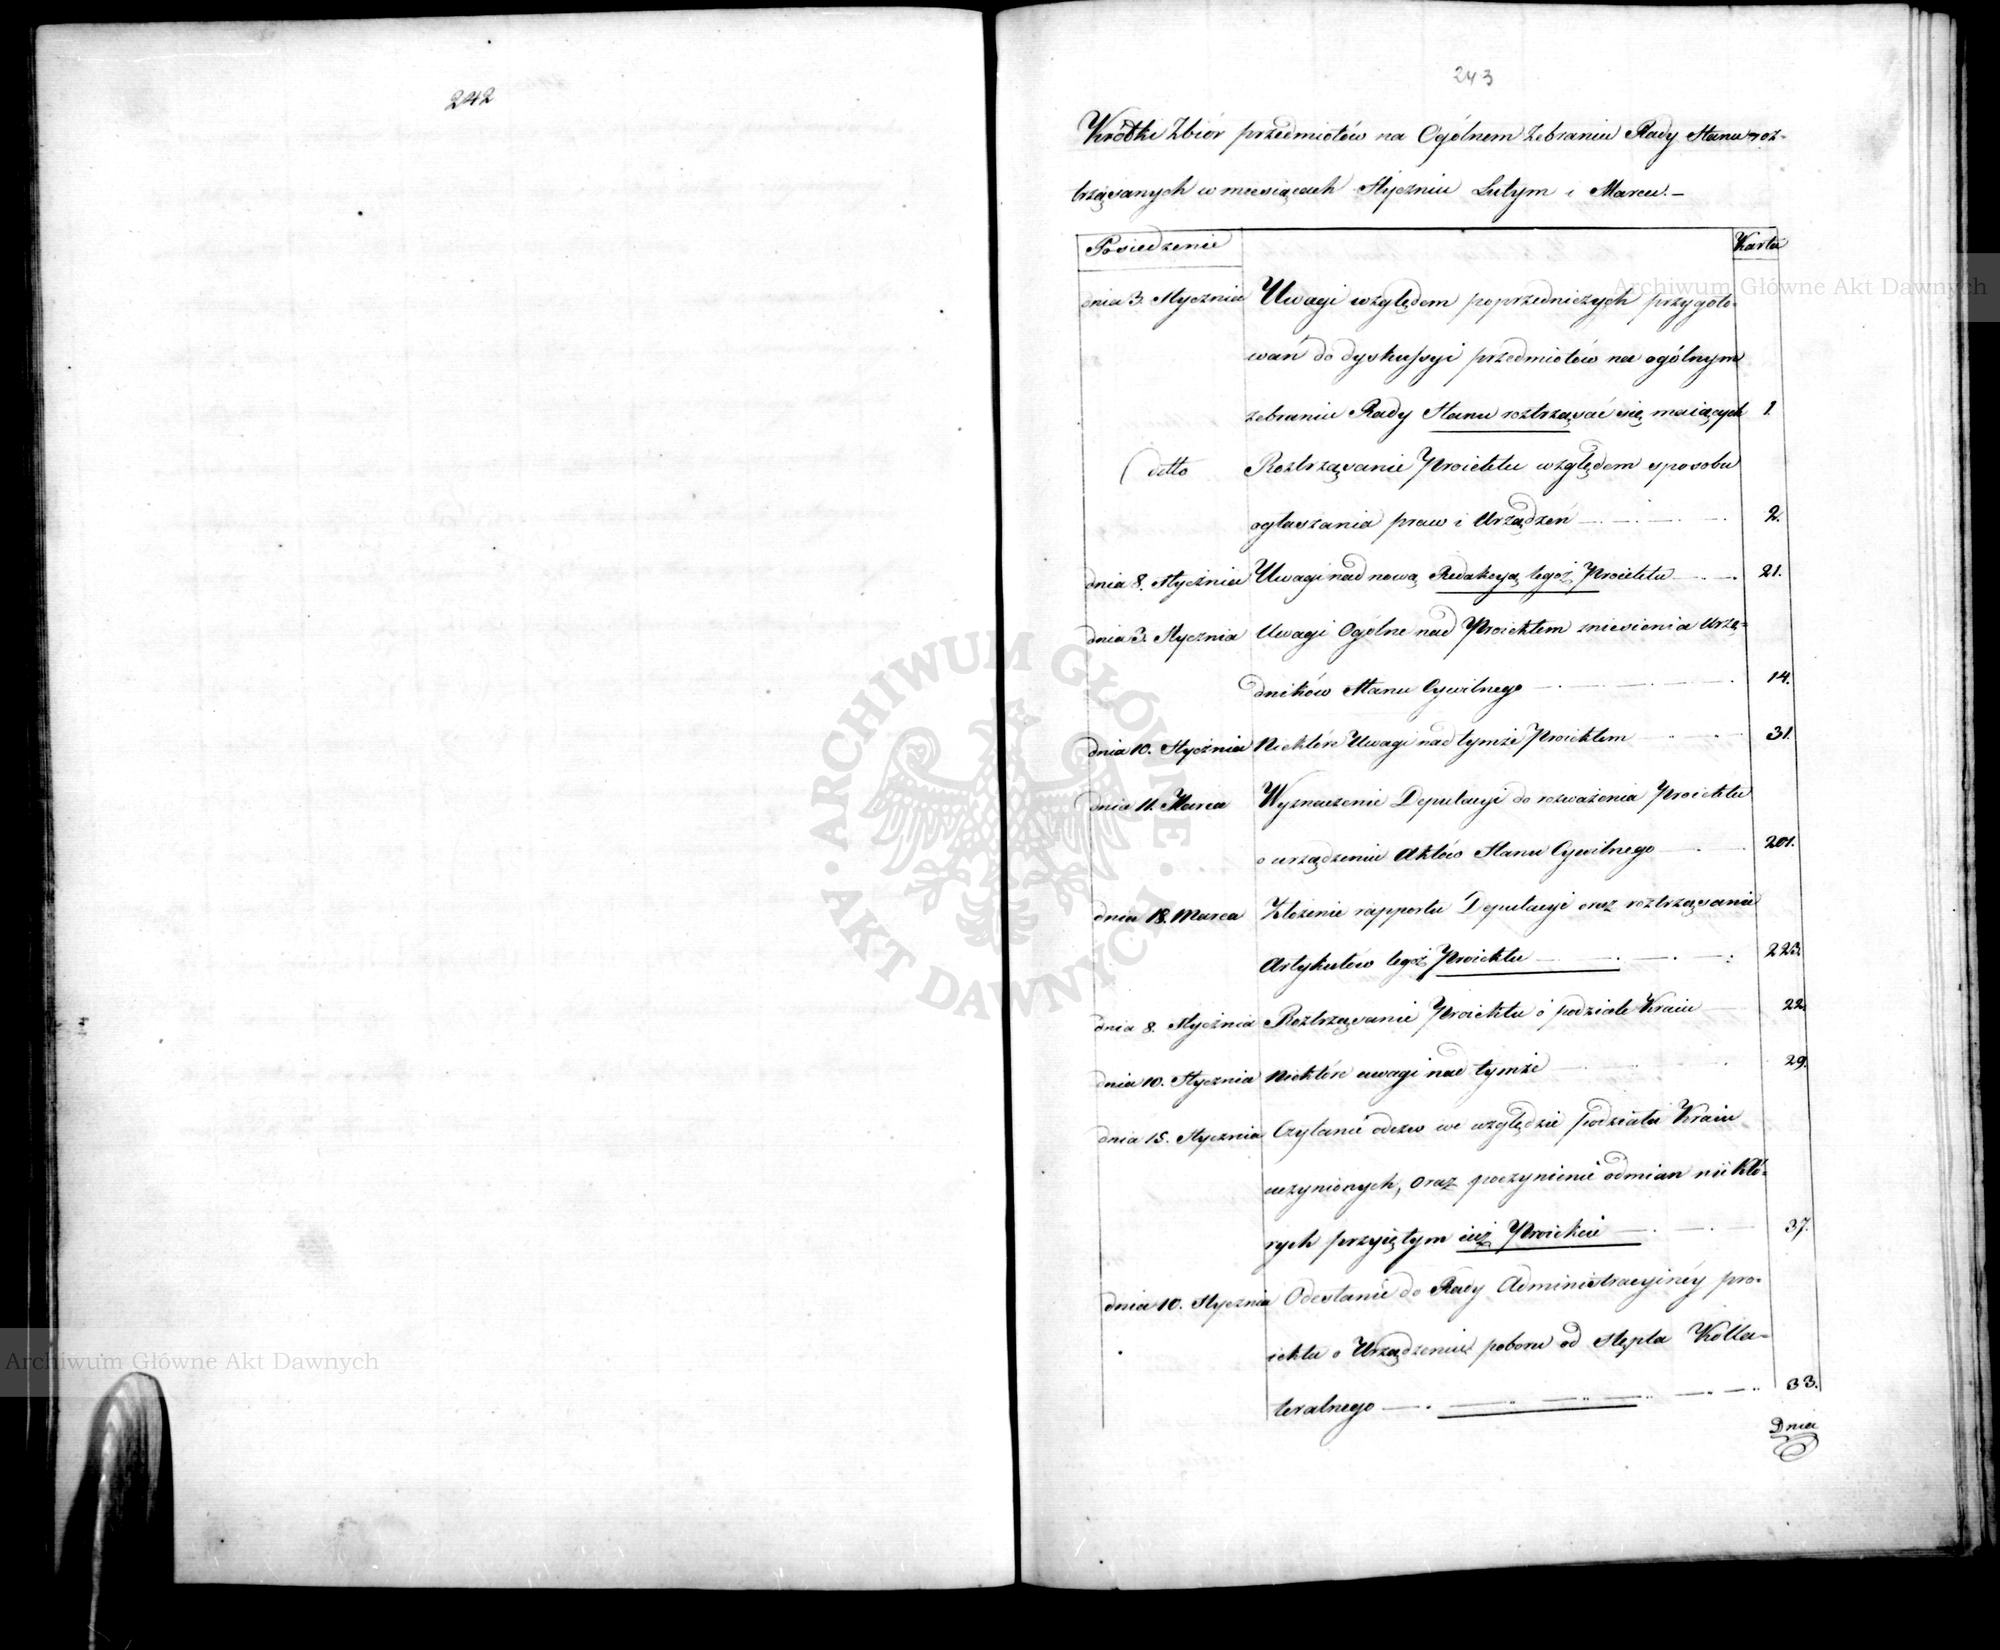 242
243
Krótki Zbiór przedmiotów na Ogólnem Zebraniu Rady Stanu roz-
trząsanych w miesiącach Styczniu Lutym i Marcu.-
Posiedzenie
Karta
dnia 3. Stycznia Uwagi względem poprzedniczych przygoto-
wań do dyskussyi przedmiotów na ogólnym
zebraniu Rady Stanu roztrząsać się maiących 1.
detto Roztrząsanie Proiektu względem sposobu
ogłaszania praw i Urządzeń 2.
dnia 8. Stycznia Uwagi nad nową Redakcyą tegoż Proiektu 21.
dnia 3. Stycznia Uwagi Ogólne nad Proiektem zniesienia Urzę-
dników Stanu Cywilnego 14.
dnia 10. Stycznia Niektóre Uwagi nad tymże Proiektem 31.
dnia 11. Marca Wyznaczenie Deputacyi do rozważenia Proiektu
o urządzeniu Aktów Stanu Cywilnego 201.
dnia 18. Marca Złożenie rapportu Deputacyi oraz roztrząsanie
Artykułów tegoż Proiektu 223.
dnia 8. Stycznia Roztrząsanie Proiektu o podziale Kraiu 22.
dnia 10. Stycznia Niektóre uwagi nad tymże 29.
dnia 15. Stycznia Czytanie odezw we względzie podziału Kraiu
uczynionych, oraz poczynienie odmian niektó-
rych przyiętym iuż Proiekcie 37.
dnia 10. Stycznia Odesłanie do Rady Administracyiney pro-
iektu o Urządzeniu poboru od stępla Kolla-
teralnego 33.
Dnia
Archiwum Główne Akt Dawnych
Archiwum Główne Akt Dawnych
ARCHIWUM GŁÓWNE AKT DAWNYCH